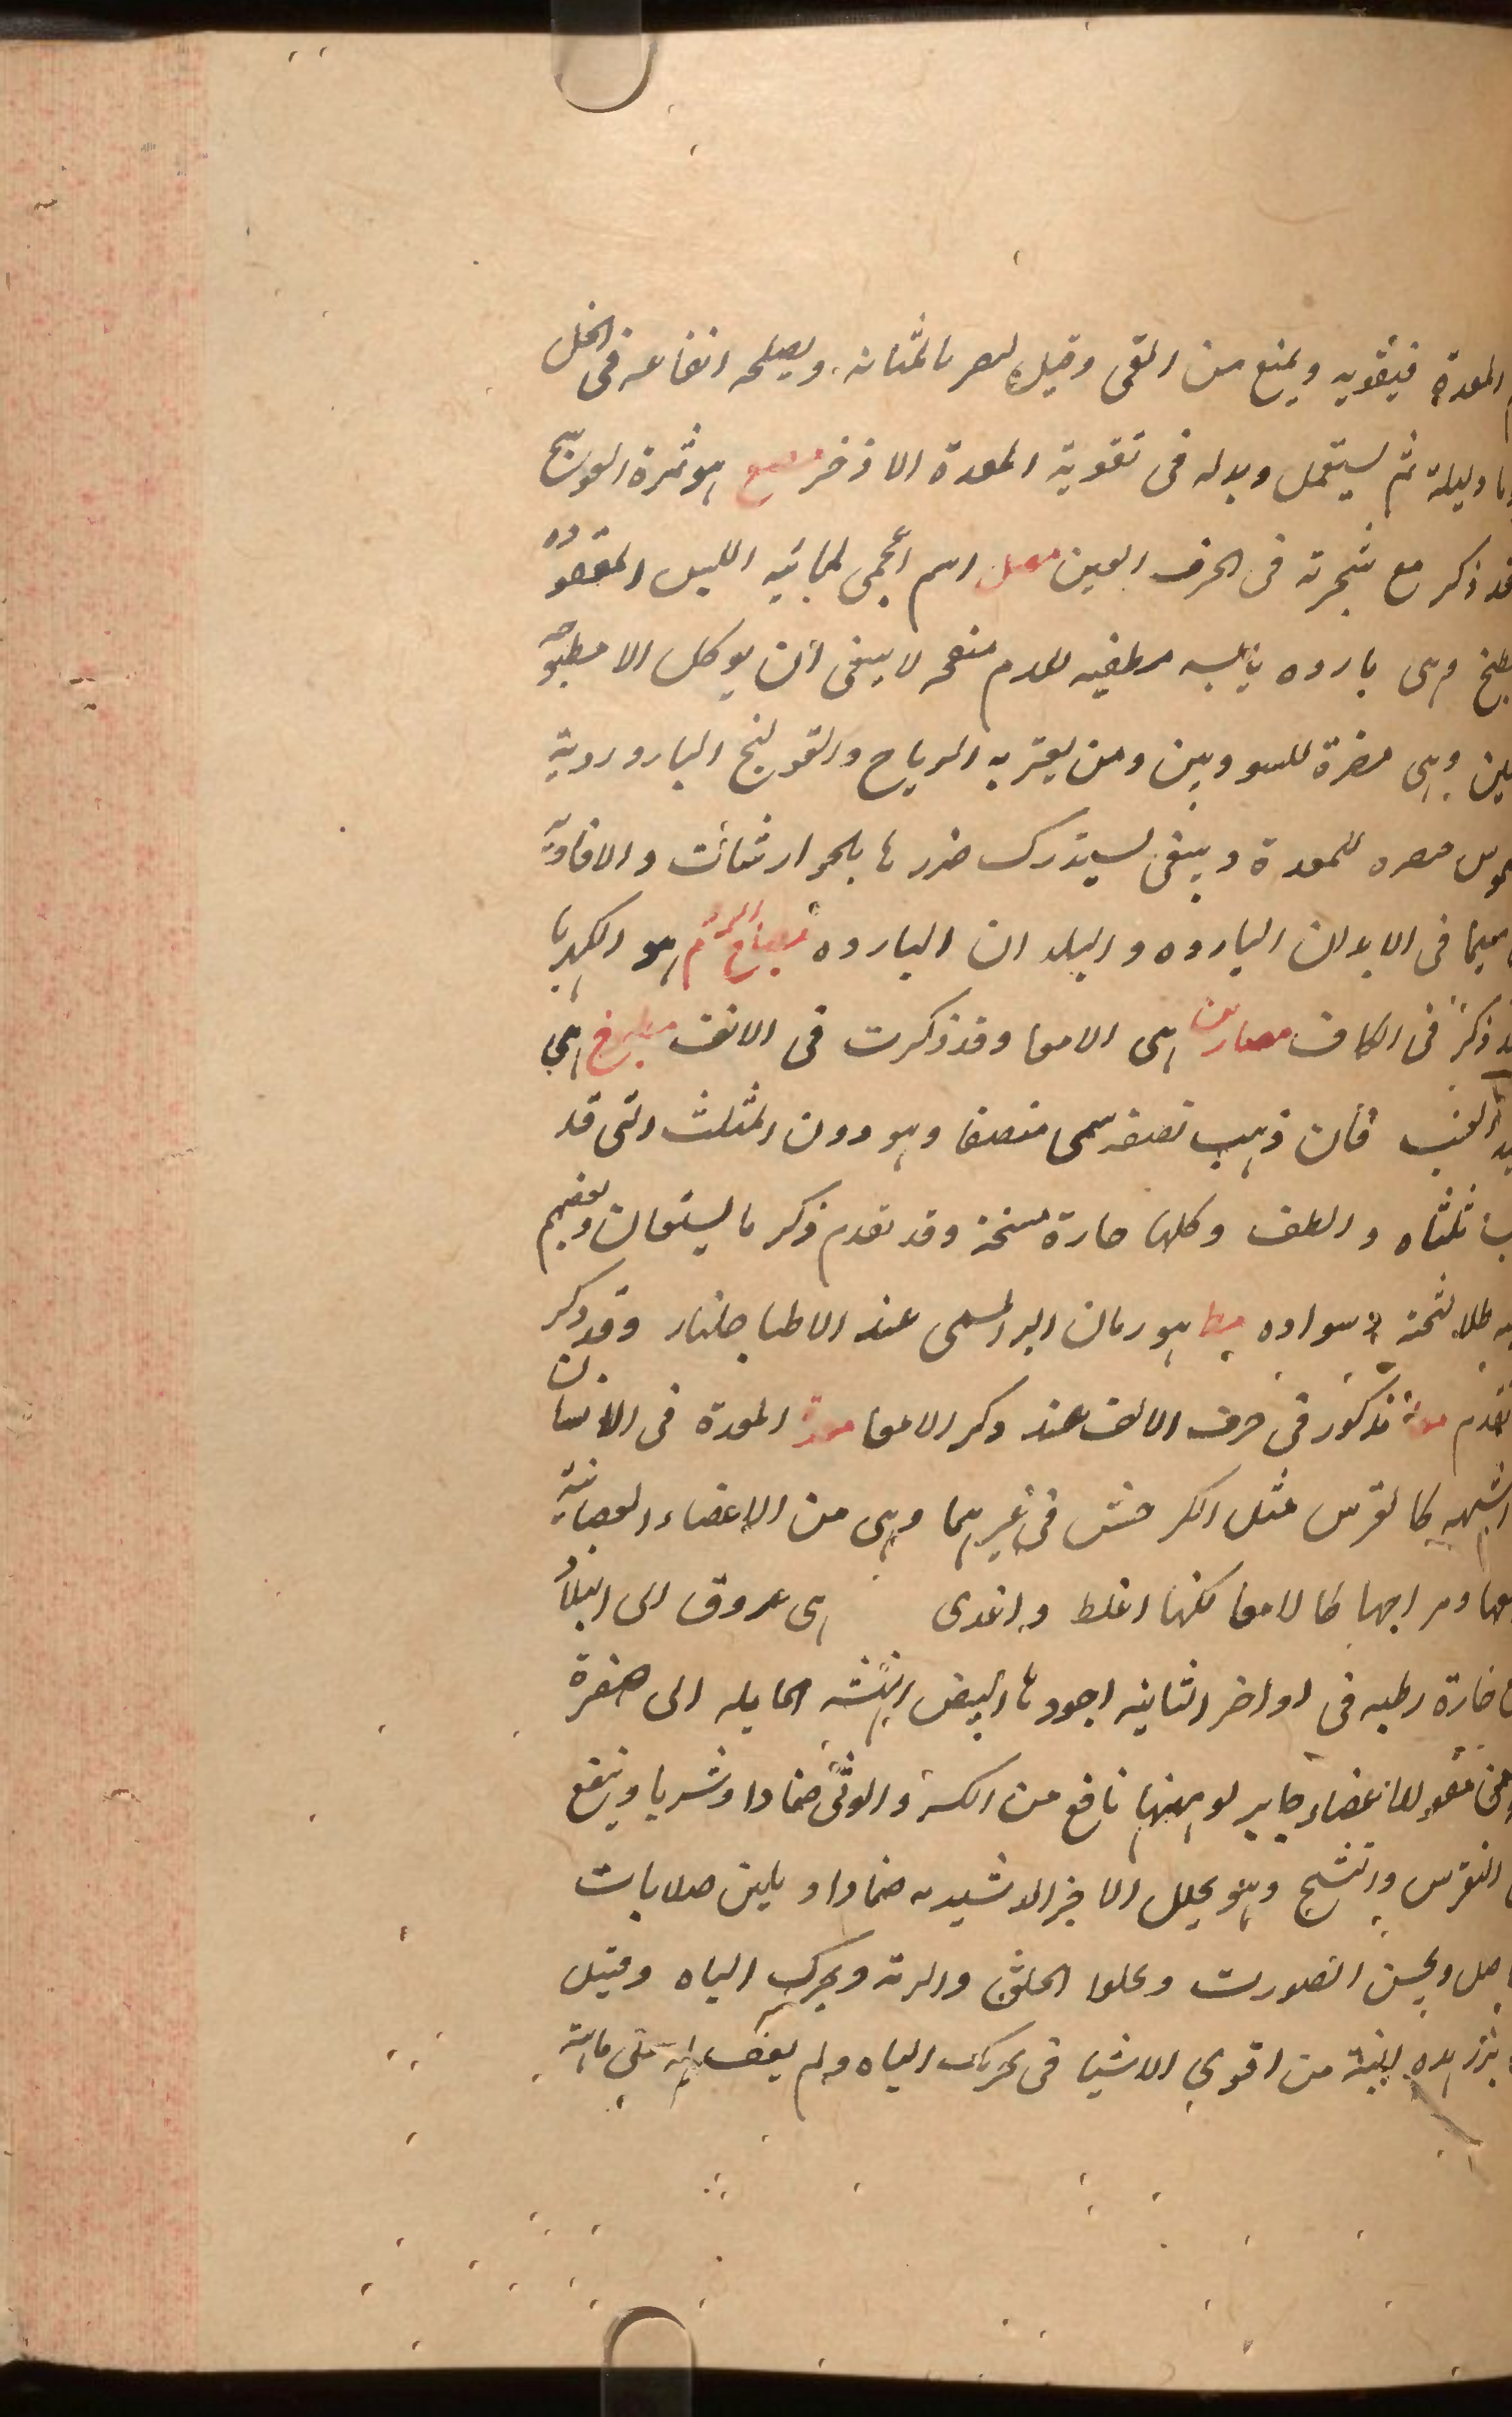 المعدة فيقويه ويمنع من القى وقيل يضر بالمثانه ويصلحه انقاعه فى الخل
وليلة ثم يستعمل وبدله فى تقوية المعدة الاذخر مصع هو ثمرة العوسج
قد ذكر مع شجرته فى الحرف العين مصل اسم أعجمى لمائية اللبن المقصوده
وهى بارده يابسه مطفيه للدم لا ينبغى أن يوكل الا مطبوخه
وهى مضرة للسوداويين ومن يعتريه الرياح والقولنج البارد رديه
مضره للمعدة وينبغى يستدرك ضررها بالجوارشنات والافاويه
سيما فى الابدان البارده والبلدان البارده مصباح الروم هو الكهربا
ذكر فى الكاف مصارين هى الامعا وقد ذكرت فى الالف هى
العنب فأن ذهب نصفه سمى منصفا وهو دون المثلث التى قد
ثلثاه والطف وكلها حارة مسخنة وقد تقدم ذكرها وبعضهم
طلا لثخنه وسواده مظ هو رمان البر المسمى عند الاطبا جلنار وقد ذكر
تقدم مذكور فى حرف الالف عند ذكر الامعا معدة المعدة فى الانسان
اشبهه مثل الكرش فى غيرهما وهى من الاعضاء العصبانية
ومزاجها كالامعا لكنها اغلظ واغدى هى عروق الى البلاد
حارة رطبه فى اواخر الثانيه اجودها البيض الهشه المايله الى صفرة
مقو للاعضاء جابر لوهنها نافع من الكسر والوثى ضمادا وشربا وينفع
النقرس والتشنج وهو يحلل ضمادا ويلين صلابات
ويحسن الصوت ويجلوا الحلق والرئة ويحرك الباه وقيل
بزر هذه النبتة من اقوى الاشيا فى تحريك الباه ولم يقف على ماهيته